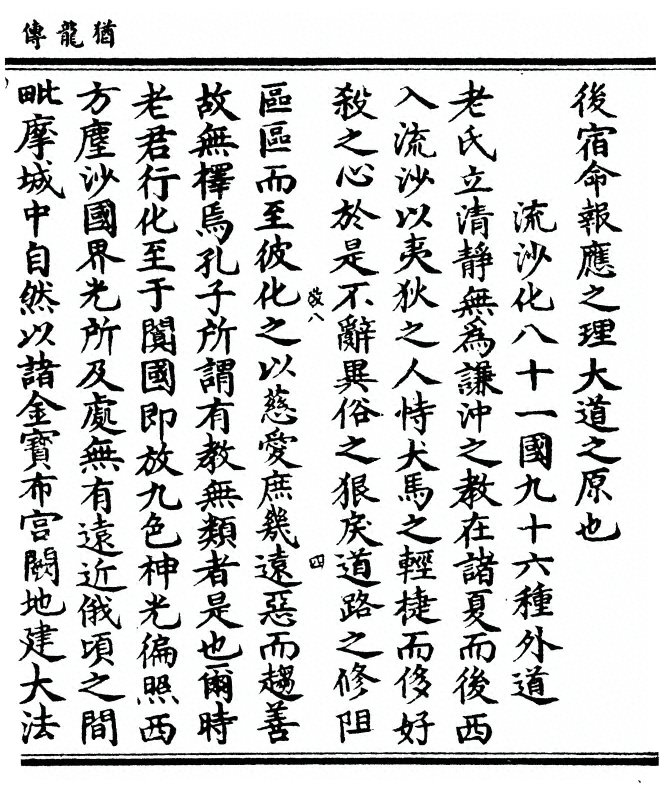 猶龍傳
後宿命報應之理大道之原也
流沙化八十一國九十六種外道
老氏立清靜無為謙沖之教在諸夏而後西
入流沙以夷狄之人恃犬馬之輕捷而侈好
殺之心於是不辭異俗之狠戾道路之修阻
改八 四
區區而至彼化之以慈愛庶幾遠惡而趨善
故無擇焉孔子所謂有教無類者是也爾時
老君行化至于闐國即放九色神光徧照西
方塵沙國界光所及處無有遠近俄頃之間
毗摩城中自然以諸金寶布宮闕地建大法